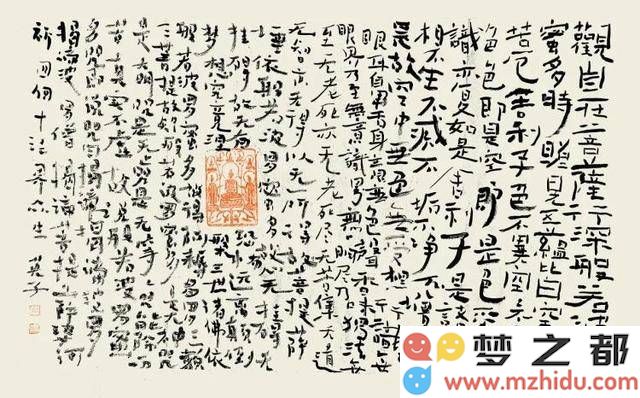 觀自在菩薩行深般若波
蜜多時照見五蘊皆空
苦厄舍利子色不異空
色色即是空即是色受
識亦復如是舍利子是諸
相不生不滅不垢不淨不增
是故空中無色無受想行識無
眼耳鼻舌身意無色聲香味觸法無
眼界乃至無意識界無無明盡乃
至无老死亦无老死尽无苦集滅道
无智亦无得以无所得故菩提薩
埵依般若波羅蜜多故无罣礙无
罣礙故无有遠離顛倒
梦想究竟涅槃三世诸佛依
般若波羅蜜多故得三藐
三菩提故知般若波羅蜜多是大神咒
是大明咒是无上咒是无等等咒能除一切
苦真實不虛故說般若波羅蜜
多咒即說咒曰揭諦揭諦波羅
揭諦波羅僧揭諦菩提薩婆訶
祈回向十法界众生
梦之都
www.mzhidu.com